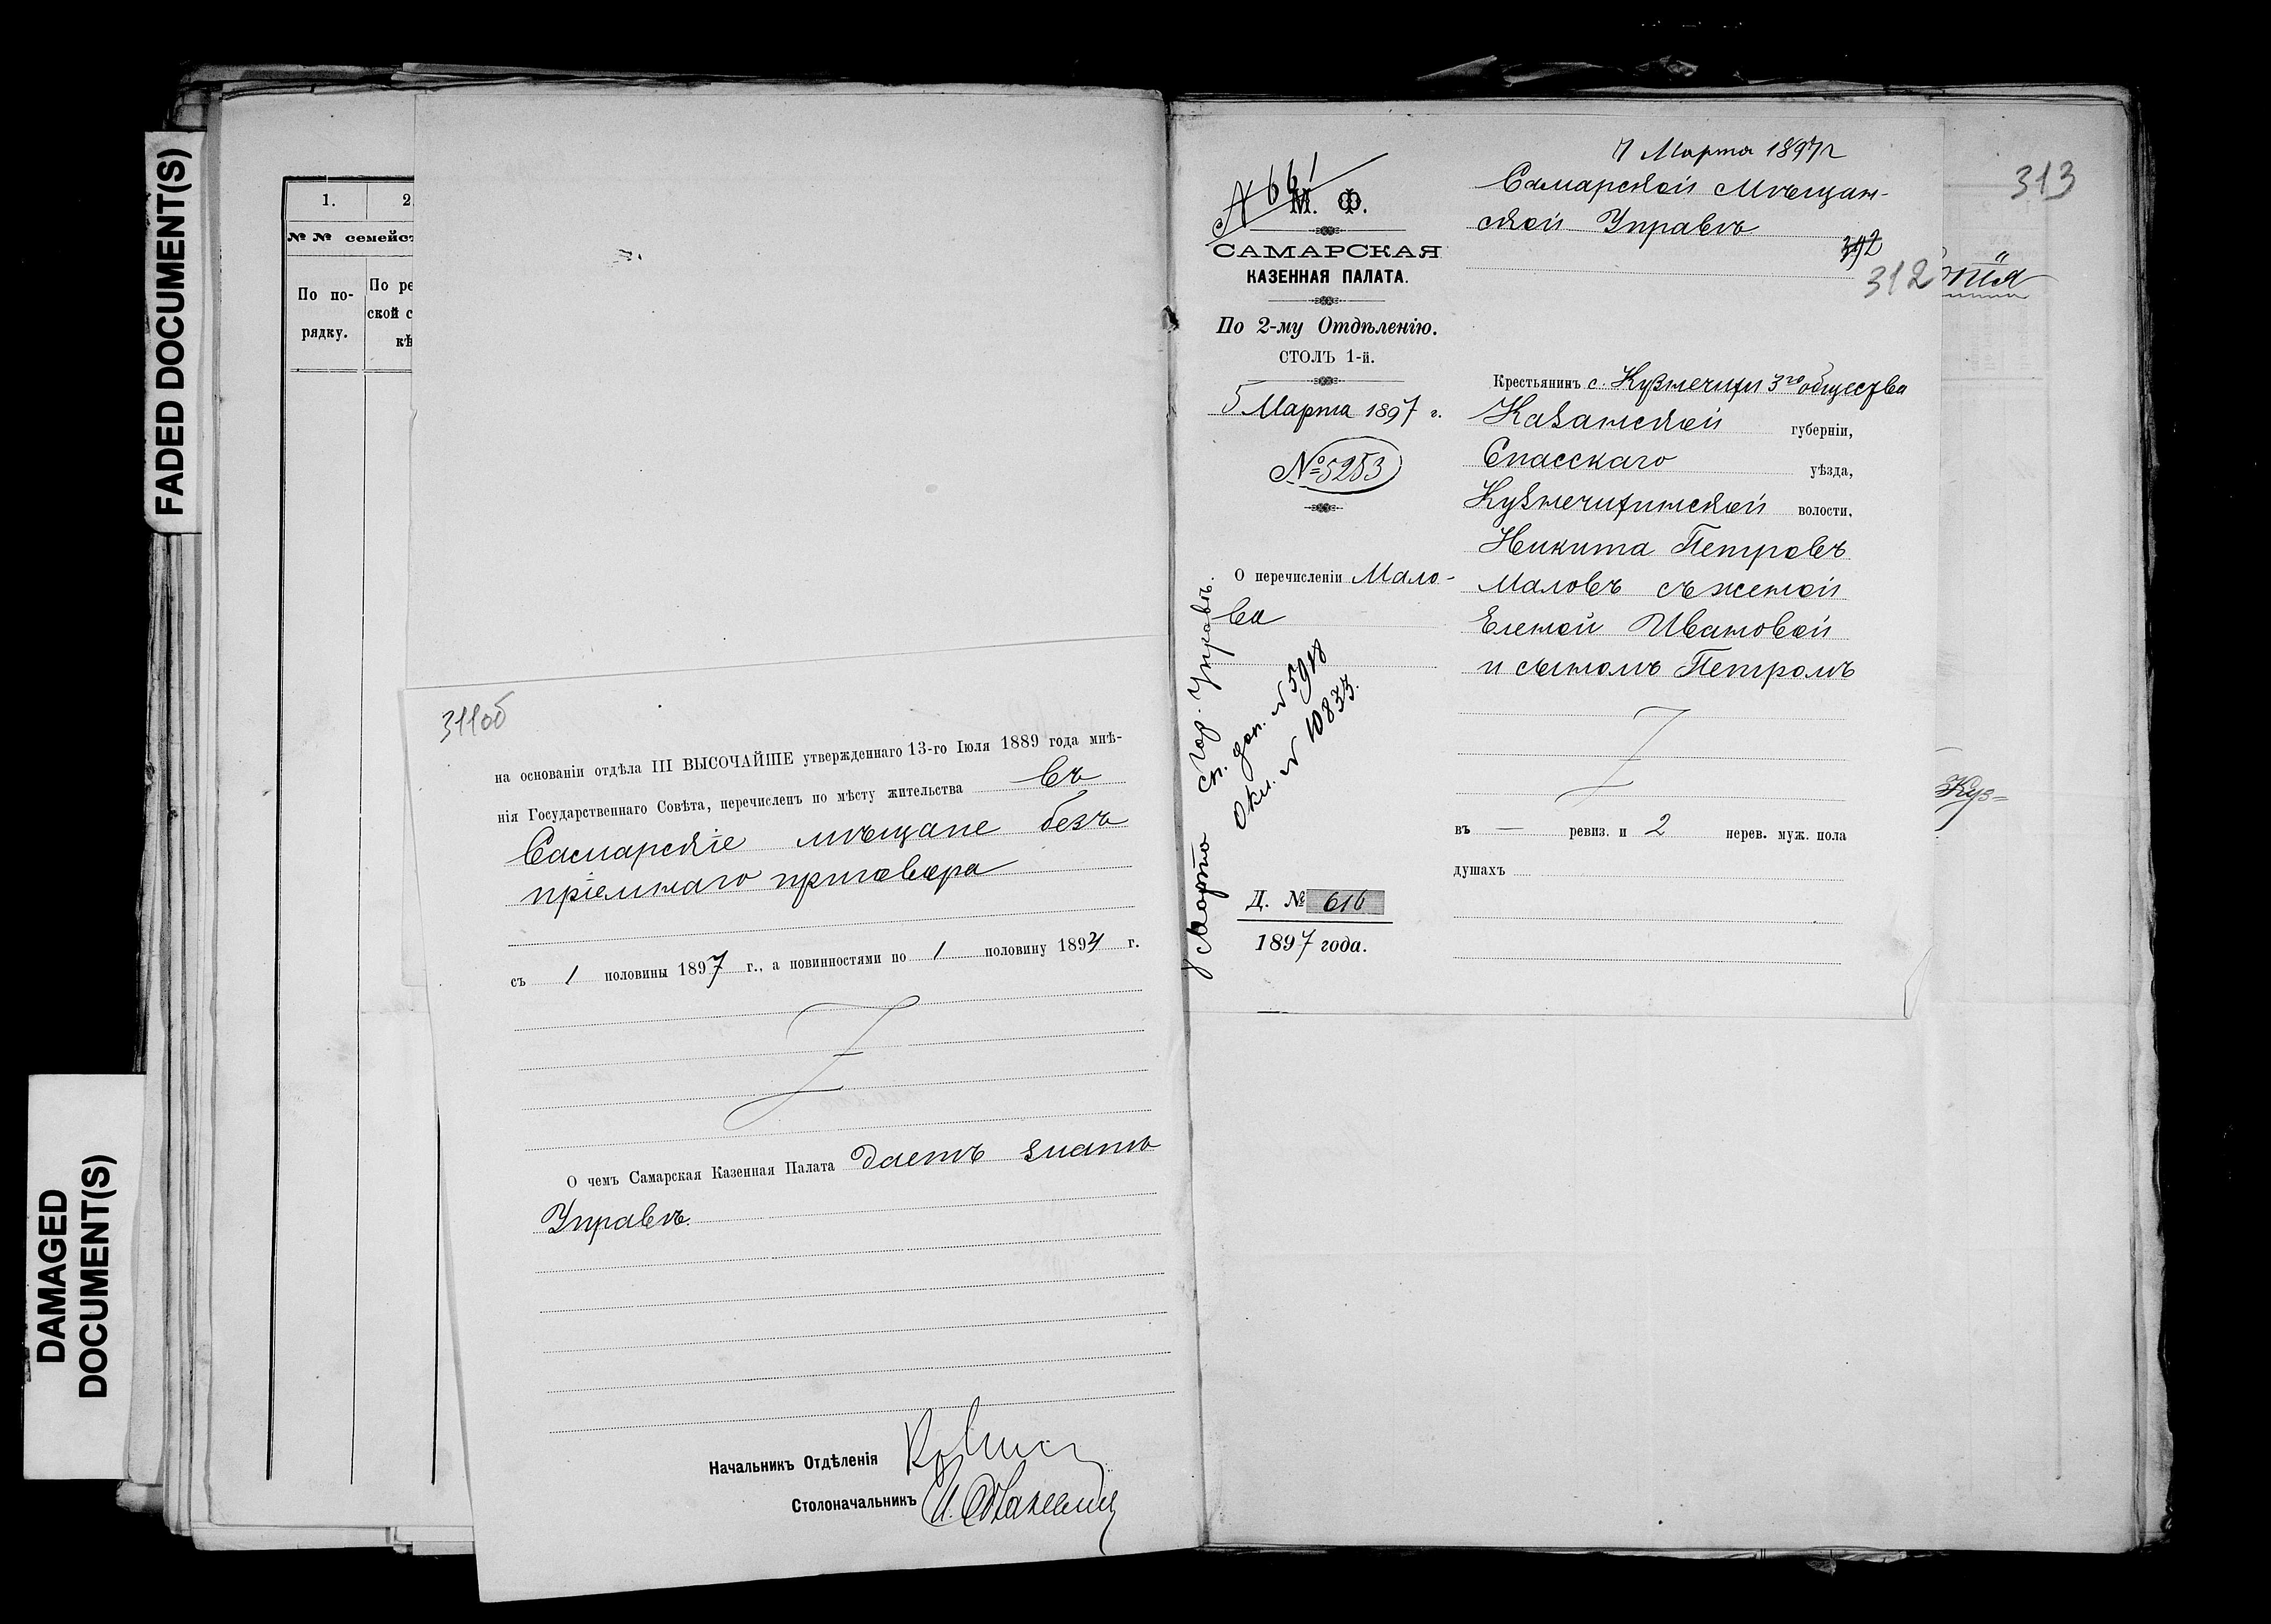 FADED DOCUMENT(S)
DAMAGED
DOCUMENT(S)
1.
2
№№ семейст
По по-
рядку.
По ре
ской с
кѣ
311об
на основаніи отдѣла III ВЫСОЧАЙШЕ утвержденнаго 13-го Іюля 1889 года мнѣ-
нія Государственнаго Совѣта, перечисленъ по мѣсту жительства въ
Самарскіе мѣщане безъ
пріемнаго приговора
съ 1 половины 1897 г., а повинностями по 1 половину 189 г.
О чемъ Самарская Казенная Палата даетъ знать
Управѣ.
Начальникъ Отдѣленія
Столоначальникъ
№ 661
М. Ф.
САМАРСКАЯ
КАЗЕННАЯ ПАЛАТА.
По 2-му Отдѣленію.
СТОЛЪ 1-й.
5 Марта 1897 г.
№ 5253
О перечисленіи Мало-
ва
Марта Гор. Управѣ.
сп. доп. № 5918
Окл. № 10833.
Д. № 616
1897 года.
7 Марта 1897 г
Самарской Мѣщан-
ской Управѣ
312
312
Крестьянинъ с. Кузнечихи 3го общества
Казанской губерніи,
Спасскаго уѣзда,
Кузнечихинской волости,
Никита Петровъ
Маловъ съ женой
Еленой Ивановой
и сыномъ Петромъ
въ — ревиз. и 2 нерев. муж. пола
душахъ
313
пія
Куз=